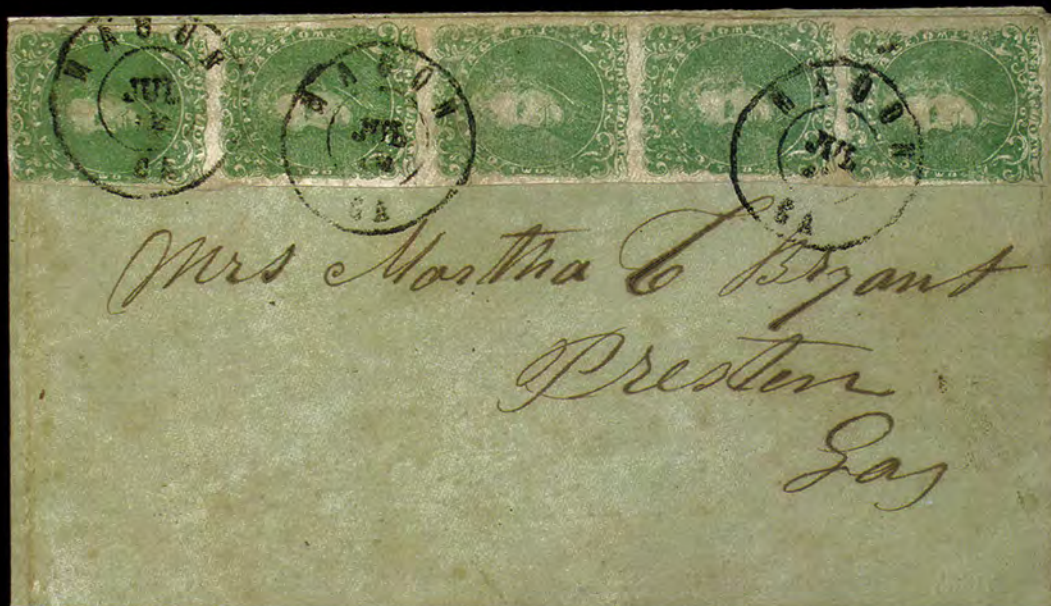 MACON
JUL
GA
MACON
JUL
GA
MACON
JUL
GA
TWO
Mrs Martha C Bryant
Preston
Gas